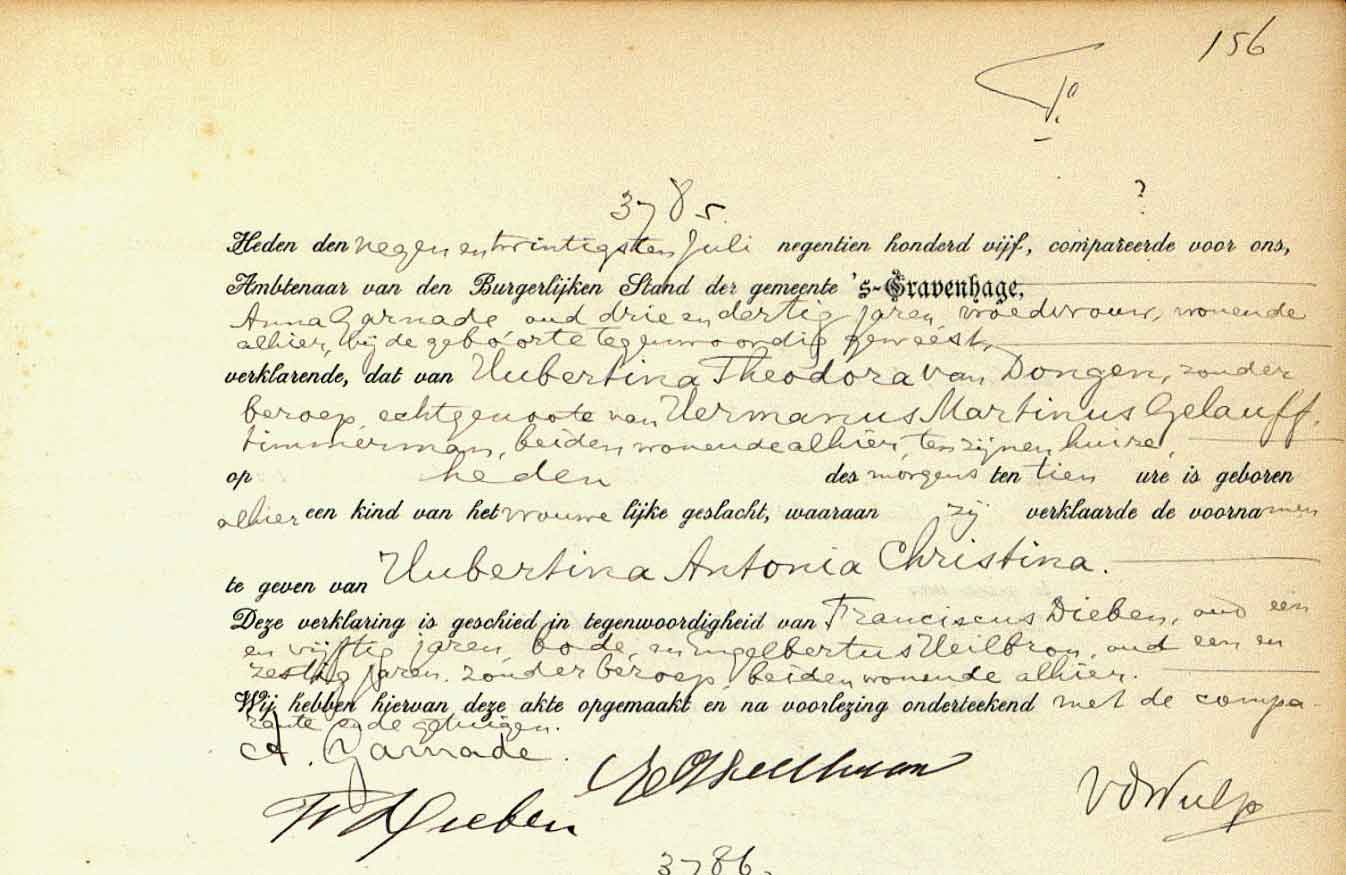 156
3785.
?
Heden den negen en twintigsten Juli negentien honderd vijf, compareerde voor ons,
Ambtenaar van den Burgerlijken Stand der gemeente 's-Gravenhage,
Anna Garnade, oud drie en dertig jaren, vroedvrouw, wonende
alhier, bij de geboorte tegenwoordig geweest,
verklarende, dat van Hubertina Theodora van Dongen, zonder
beroep, echtgenoote van Hermanus Martinus Gelauff,
timmerman, beiden wonende alhier, ten zijnen huize,
op heden des morgens ten tien ure is geboren
alhier een kind van het vrouwelijke geslacht, waaraan zij verklaarde de voornamen
te geven van Hubertina Antonia Christina.
Deze verklaring is geschied in tegenwoordigheid van Franciscus Dieben, oud een
en vijftig jaren, bode, en Engelbertus Heilbron, oud een en
zestig jaren, zonder beroep, beiden wonende alhier.
Wij hebben hiervan deze akte opgemaakt en na voorlezing onderteekend met de compa-
rante en de getuigen.
A. Garnade.
Dieben
VdWulp
3786.